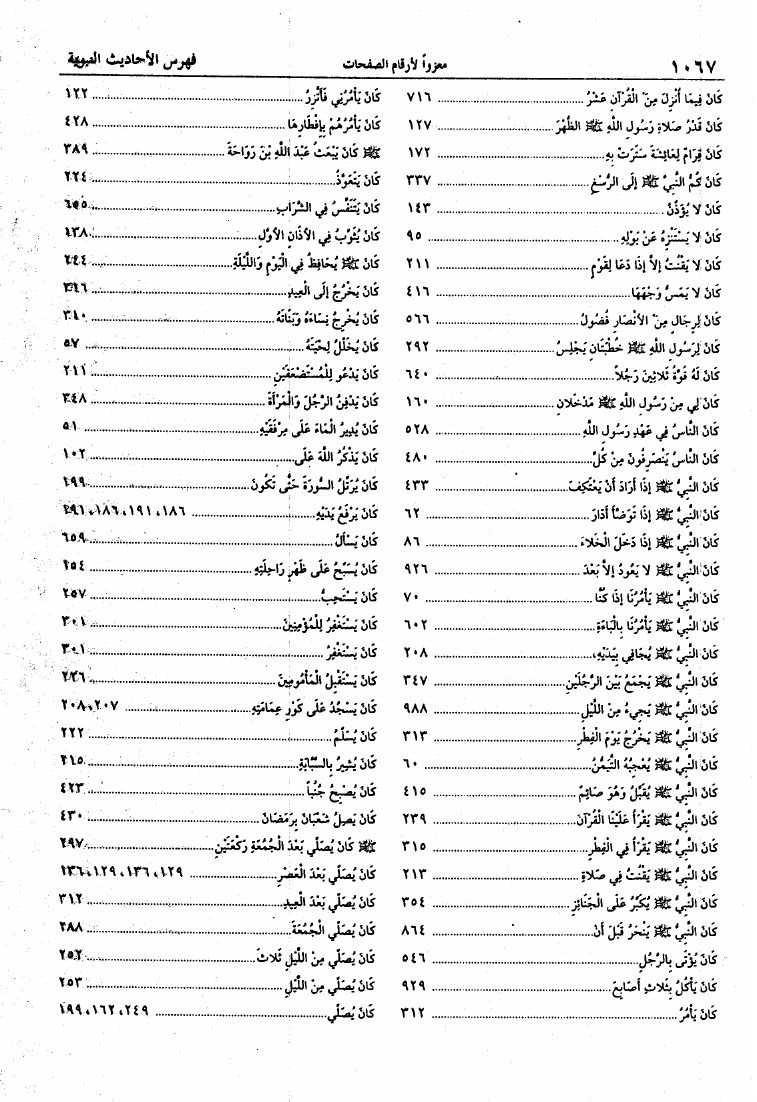 ١٠٦٧ معزراً لأرقام الصفحات فهرس الأحاديث النبوية
كَانَ فِيمَا أُنْزِلَ مِنَ الْقُرْآنِ عَشْرُ ٧١٦
كَانَ قَدْرُ صَلَاةِ رَسُولِ اللَّهِ ﷺ الظُّهْرَ ١٢٧
كَانَ قِرَامٌ لِعَائِشَةَ سَتَرَتْ بِهِ ١٧٢
كَانَ كُمُّ النَّبِيِّ ﷺ إِلَى الرُّسْغِ ٣٣٧
كَانَ لَا يُؤَذِّنُ ١٤٣
كَانَ لَا يَسْتَنْزِهُ عَنْ بَوْلِهِ ٩٥
كَانَ لَا يَقْنُتُ إِلاَّ إِذَا دَعَا لِقَوْمٍ ٢١١
كَانَ لَا يَمَسُّ وَجْهَهَا ٤١٦
كَانَ لِرِجَالٍ مِنَ الْأَنْصَارِ فُضُولُ ٥٦٦
كَانَ لِرَسُولِ اللَّهِ ﷺ خُطْبَتَانِ يَجْلِسُ ٢٩٢
كَانَ لَهُ قُوَّةُ ثَلَاثِينَ رَجُلاً ٦٤٠
كَانَ لِي مِنْ رَسُولِ اللَّهِ ﷺ مَدْخَلَانِ ١٦٠
كَانَ النَّاسُ فِي عَهْدِ رَسُولِ اللَّهِ ٥٢٨
كَانَ النَّاسُ يَنْصَرِفُونَ مِنْ كُلِّ ٤٨٠
كَانَ النَّبِيُّ ﷺ إِذَا أَرَادَ أَنْ يَعْتَكِفَ ٤٣٣
كَانَ النَّبِيُّ ﷺ إِذَا تَوَضَّأَ أَدَارَ ٦٢
كَانَ النَّبِيُّ ﷺ إِذَا دَخَلَ الْخَلَاءَ ٨٦
كَانَ النَّبِيُّ ﷺ لَا يَعُودُ إِلاَّ بَعْدَ ٩٢٦
كَانَ النَّبِيُّ ﷺ يَأْمُرُنَا إِذَا كُنَّا ٧٠
كَانَ النَّبِيُّ ﷺ يَأْمُرُنَا بِالْبَاءَةِ ٦٠٢
كَانَ النَّبِيُّ ﷺ يُجَافِي بِيَدَيْهِ، ٢٠٨
كَانَ النَّبِيُّ ﷺ يَجْمَعُ بَيْنَ الرَّجُلَيْنِ ٣٤٧
كَانَ النَّبِيُّ ﷺ يَجِيءُ مِنَ اللَّيْلِ ٩٨٨
كَانَ النَّبِيُّ ﷺ يَخْرُجُ يَوْمَ الْفِطْرِ ٣١٣
كَانَ النَّبِيُّ ﷺ يُعْجِبُهُ التَّيَمُّنُ ٦٠
كَانَ النَّبِيُّ ﷺ يُقَبِّلُ وَهُوَ صَائِمٌ ٤١٥
كَانَ النَّبِيُّ ﷺ يَقْرَأُ عَلَيْنَا الْقُرْآنَ ٢٣٩
كَانَ النَّبِيُّ ﷺ يَقْرَأُ فِي الْفِطْرِ ٣١٥
كَانَ النَّبِيُّ ﷺ يَقْنُتُ فِي صَلَاةِ ٢١٣
كَانَ النَّبِيُّ ﷺ يُكَبِّرُ عَلَى الْجَنَائِزِ ٣٥٤
كَانَ النَّبِيُّ ﷺ يَنْحَرُ قَبْلَ أَنْ ٨٦٤
كَانَ يُؤْتَى بِالرَّجُلِ ٥٤٦
كَانَ يَأْكُلُ بِثَلَاثِ أَصَابِعَ ٩٢٩
كَانَ يَأْمُرُ ٣١٢
كَانَ يَأْمُرُنِي فَأَتَّزِرُ ١٢٢
كَانَ يَأْمُرُهُمْ بِإِفْطَارِهَا ٤٢٨
ﷺ كَانَ يَبْعَثُ عَبْدَ اللَّهِ بْنَ رَوَاحَةَ ٣٨٩
كَانَ يَتَعَوَّذُ ٢٢٤
كَانَ يَتَنَفَّسُ فِي الشَّرَابِ
كَانَ يُثَوِّبُ فِي الْأَذَانِ الْأَوَّلِ ١٣٨
كَانَ ﷺ يُحَافِظُ فِي الْيَوْمِ وَاللَّيْلَةِ ٢٤٤
كَانَ يَخْرُجُ إِلَى الْعِيدِ
كَانَ يُخْرِجُ نِسَاءَهُ وَبَنَاتَهُ
كَانَ يُخَلِّلُ لِحْيَتَهُ ٥٧
كَانَ يَدْعُو لِلْمُسْتَضْعَفِينَ ٢١١
كَانَ يَدْفِنُ الرَّجُلَ وَالْمَرْأَةَ ٣٤٨
كَانَ يُدِيرُ الْمَاءَ عَلَى مِرْفَقَيْهِ ٥١
كَانَ يَذْكُرُ اللَّهَ عَلَى ١٠٢
كَانَ يُرَتِّلُ السُّورَةَ حَتَّى تَكُونَ
كَانَ يَرْفَعُ يَدَيْهِ ١٨٦، ١٩١، ١٨٦،
كَانَ يَسْأَلُ ٦٥٩
كَانَ يُسَبِّحُ عَلَى ظَهْرِ رَاحِلَتِهِ ٢٥٤
كَانَ يَسْتَحِبُّ ٢٥٧
كَانَ يَسْتَغْفِرُ لِلْمُؤْمِنِينَ ٣٠١
كَانَ يَسْتَغْفِرُ ٣٠١
كَانَ يَسْتَقْبِلُ الْمَأْمُومِينَ
كَانَ يَسْجُدُ عَلَى كَوْرِ عِمَامَتِهِ ٢٠٧، ٢٠٨
كَانَ يُسَلِّمُ ٢٢٢
كَانَ يُشِيرُ بِالسَّبَّابَةِ ٢١٥
كَانَ يُصْبِحُ جُنُباً ٤٢٣
كَانَ يَصِلُ شَعْبَانَ بِرَمَضَانَ ٤٣٠
ﷺ كَانَ يُصَلِّي بَعْدَ الْجُمُعَةِ رَكْعَتَيْنِ ٢٩٧
كَانَ يُصَلِّي بَعْدَ الْعَصْرِ ١٢٩، ١٣٦، ١٢٩، ١٣٦
كَانَ يُصَلِّي بَعْدَ الْعِيدِ ٣١٢
كَانَ يُصَلِّي الْجُمُعَةَ ٢٨٨
كَانَ يُصَلِّي مِنَ اللَّيْلِ ثَلَاثَ ٢٥٢
كَانَ يُصَلِّي مِنَ اللَّيْلِ ٢٥٣
كَانَ يُصَلِّي ٢٤٩، ١٦٢، ١٩٩